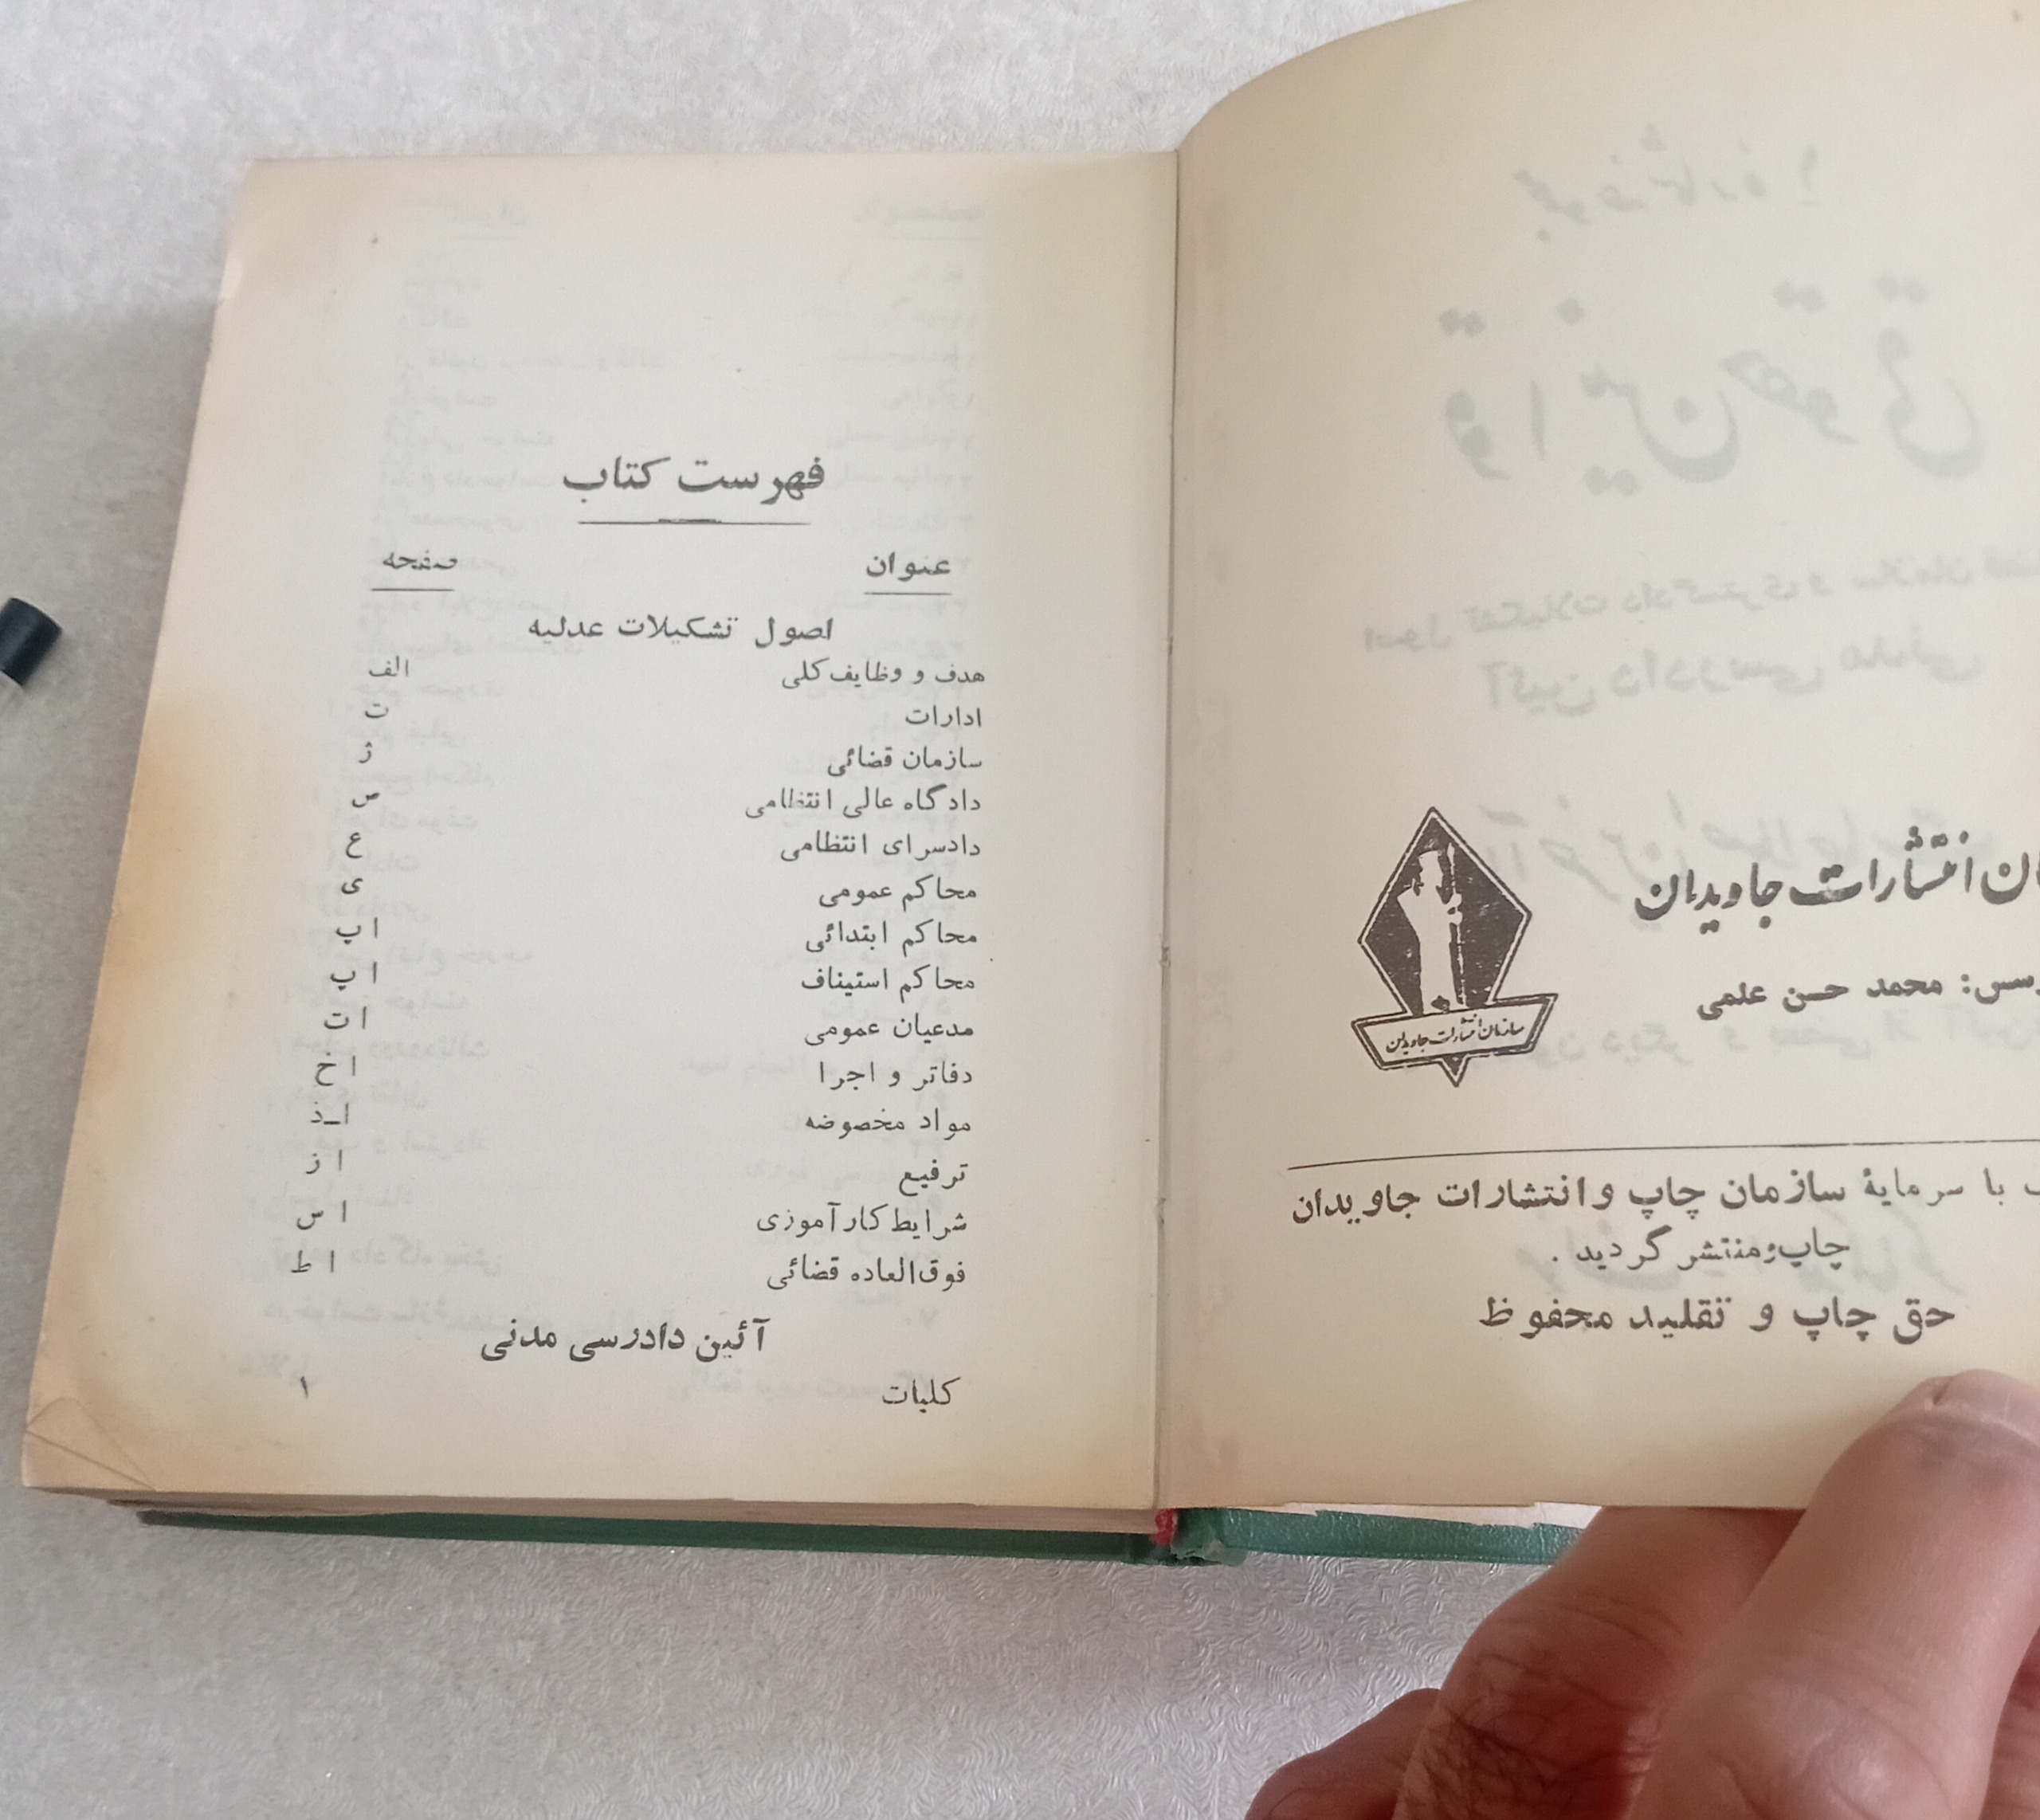 انتشارات جاویدان
محمد حسن علمی
سازمان انتشارات جاویدان
با سرمایهٔ سازمان چاپ و انتشارات جاویدان
چاپ و منتشر گردید .
حق چاپ و تقلید محفوظ
فهرست کتاب
عنوان صفحه
اصول تشکیلات عدلیه
هدف و وظایف کلی الف
ادارات ت
سازمان قضائی ژ
دادگاه عالی انتظامی ص
دادسرای انتظامی ع
محاکم عمومی ی
محاکم ابتدائی ا پ
محاکم استیناف ا پ
مدعیان عمومی ا ت
دفاتر و اجرا ا خ
مواد مخصوضه ا_ذ
ترفیع ا ز
شرایط کارآموزی ا س
فوق‌العاده قضائی ا ط
آئین دادرسی مدنی
کلیات ۱